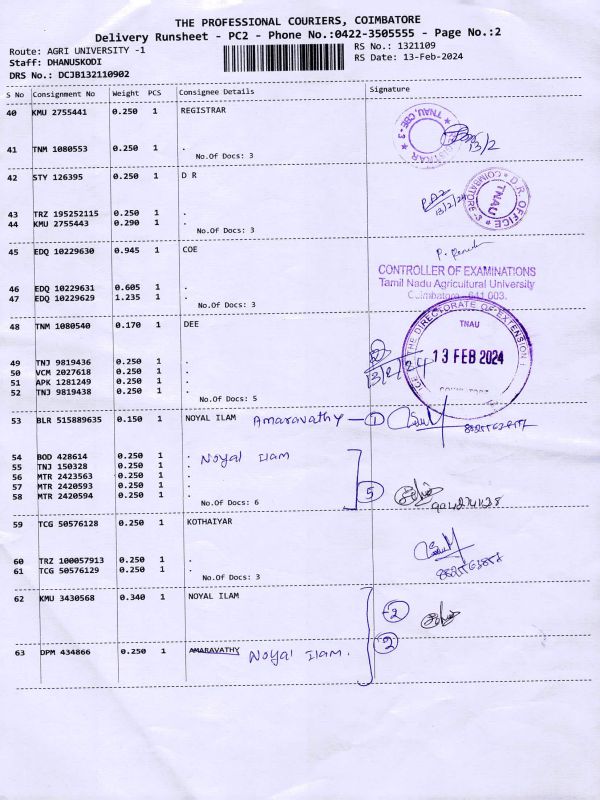 THE PROFESSIONAL COURIERS, COIMBATORE
Delivery Runsheet - PC2 - Phone No.:0422-3505555 - Page No.:2
Route: AGRI UNIVERSITY -1
RS No.: 1321109
Staff: DHANUSKODI
RS Date: 13-Feb-2024
DRS No.: DCJB132110902
S No Consignment No Weight PCS Consignee Details Signature
40 KMU 2755441 0.250 1 REGISTRAR
TNAU, CBE-3
13/2
41 TNM 1080553 0.250 1 .
No.Of Docs: 3
42 STY 126395 0.250 1 D R
D.R. OFFICE TNAU COIMBATORE-3
13/2/24
43 TRZ 195252115 0.250 1 .
44 KMU 2755443 0.290 1 .
No.Of Docs: 3
45 EDQ 10229630 0.945 1 COE
CONTROLLER OF EXAMINATIONS
Tamil Nadu Agricultural University
Coimbatore - 641 003.
46 EDQ 10229631 0.605 1 .
47 EDQ 10229629 1.235 1 .
No.Of Docs: 3
48 TNM 1080540 0.170 1 DEE
THE DIRECTORATE OF EXTENSION
TNAU
13 FEB 2024
13/2/24
49 TNJ 9819436 0.250 1 .
50 VCM 2027618 0.250 1 .
51 APK 1281249 0.250 1 .
52 TNJ 9819438 0.250 1 .
No.Of Docs: 5
53 BLR 515889635 0.150 1 NOYAL ILAM Amaravathy - 1
54 BOD 428614 0.250 1 . Noyal Ilam
55 TNJ 150328 0.250 1 .
56 MTR 2423563 0.250 1 .
57 MTR 2420593 0.250 1 .
5
58 MTR 2420594 0.250 1 .
No.Of Docs: 6
59 TCG 50576128 0.250 1 KOTHAIYAR
60 TRZ 100057913 0.250 1 .
61 TCG 50576129 0.250 1 .
No.Of Docs: 3
62 KMU 3430568 0.340 1 NOYAL ILAM
2
2
63 DPM 434866 0.250 1 AMARAVATHY Noyal Ilam.